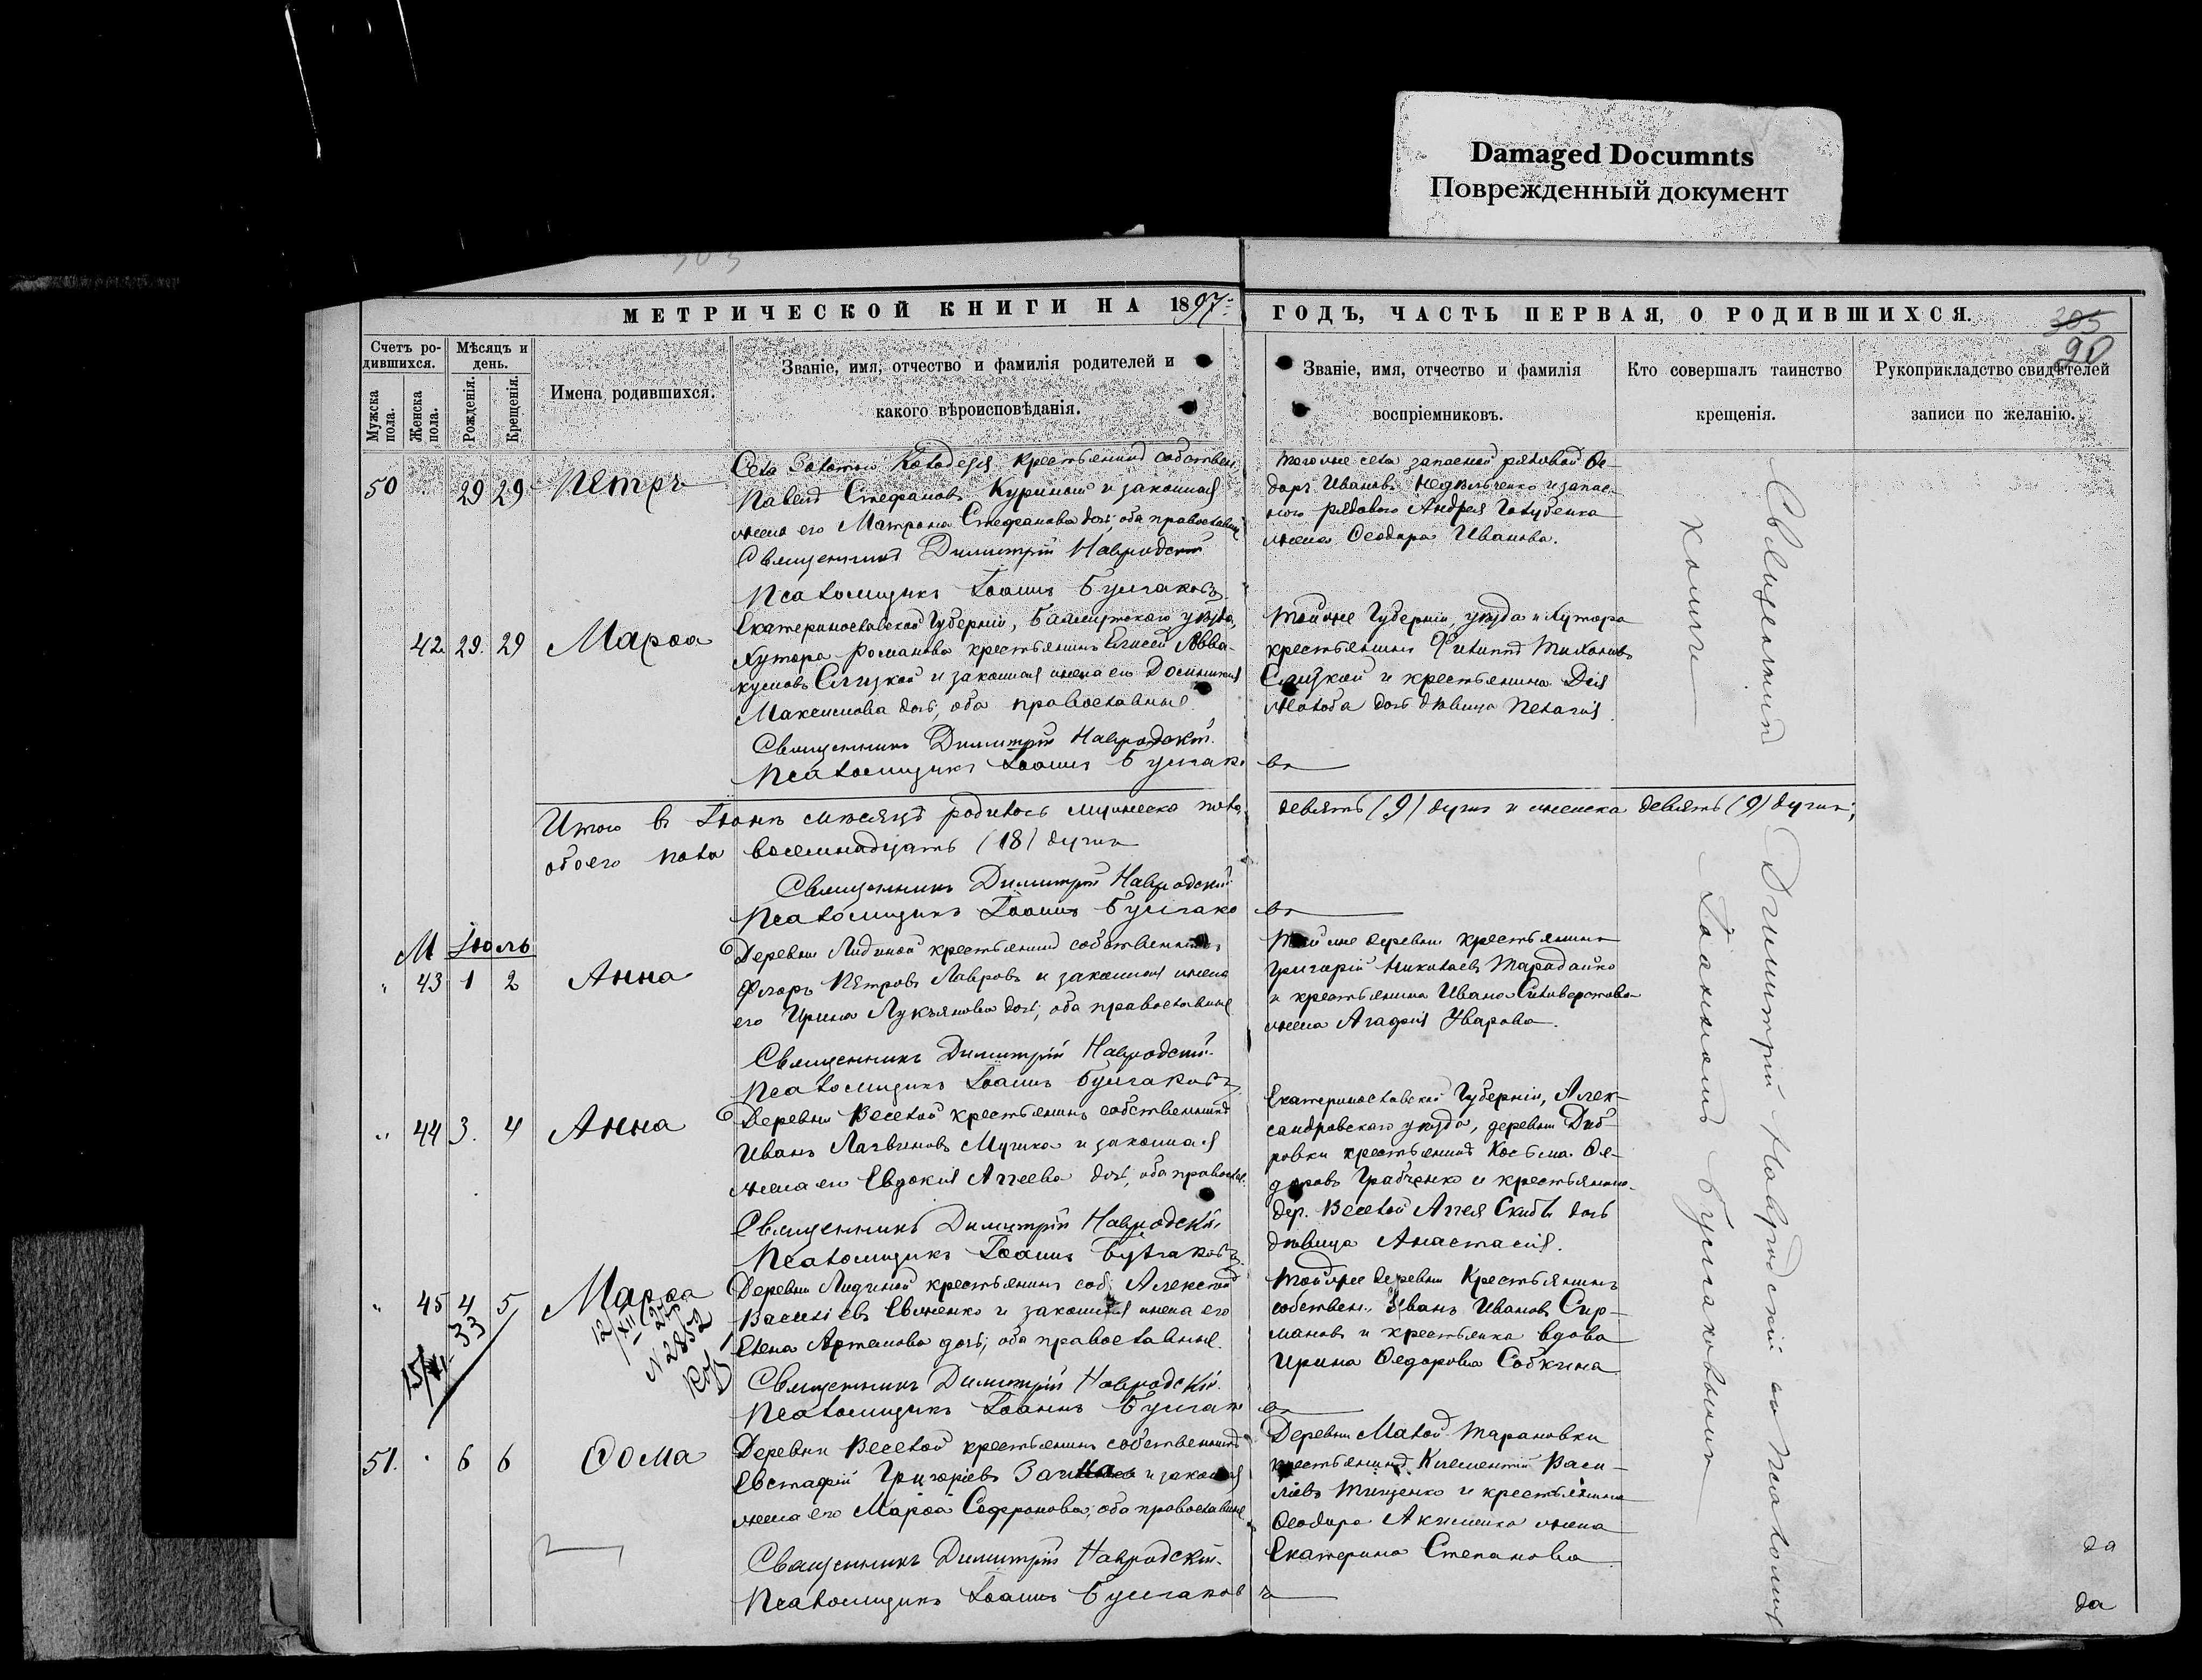 Damaged Documnts
Поврежденный документ
МЕТРИЧЕСКОЙ КНИГИ НА 1897
ГОДЪ, ЧАСТЬ ПЕРВАЯ, О РОДИВШИХСЯ.
305
90
Счетъ ро-
дившихся.
Мѣсяцъ и
день.
Мужска
пола.
Женска
пола.
Рожденія.
Крещенія.
Имена родившихся.
Званіе, имя, отчество и фамилія родителей и
какого вѣроисповѣданія.
Званіе, имя, отчество и фамилія
воспріемниковъ.
Кто совершалъ таинство
крещенія.
Рукоприкладство свидѣтелей
записи по желанію.
50 29 29 Петръ
Села крестьянинъ собствен.
Павелъ Стефановъ и законная
жена его Матрона Стефанова дочь, оба православны
Священникъ Димитрій Навродскій
Псаломщикъ Іоаннъ Булгаковъ
тогоже села запасной рядовой Ѳе-
доръ Ивановъ и запас-
ного рядового Андрея Голубенка
жена Ѳеодора Иванова.
42. 29. 29 Марѳа
Екатеринославской Губерніи, Бахмутскаго уѣзда,
Хутора Романова крестьянинъ Елисей Авва-
кумовъ Слизкой и законная жена его Домникія
Максимова дочь, оба православные.
Священникъ Димитрій Навродскій.
Псаломщикъ Іоаннъ Булгаковъ
Тойже Губерніи, уѣзда и Хутора
крестьянинъ Филиппъ Тихоновъ
Слизкой и крестьянина
дочь дѣвица Пелагія.
Итого въ Іюнѣ мѣсяцѣ родилось мужеска пола
девять (9) душъ и женска девять (9) душъ;
обоего пола восемнадцать (18) душъ
Священникъ Димитрій Навродскій
Псаломщикъ Іоаннъ Булгаковъ
М Іюль
" 43 1 2 Анна
Деревни Лидиной крестьянинъ собственникъ
Флоръ Петровъ Лавровъ и законная жена
его Ирина Лукьянова дочь, оба православные
Священникъ Димитрій Навродскій.
Псаломщикъ Іоаннъ Булгаковъ
Тойже деревни крестьянинъ
Григорій Николаевъ Тарадайко
и крестьянина Ивана Силиверстова
жена Агафія Уварова.
" 44 3. 4 Анна
Деревни Веселой крестьянинъ собственникъ
Иванъ и законная
жена его Евдокія Аггеева дочь, оба правосл.
Священникъ Димитрій Навродскій,
Псаломщикъ Іоаннъ Булгаковъ
Екатеринославской Губерніи, Алек-
сандровскаго уѣзда, деревни Диб-
ровки крестьянинъ Косьма Ѳе-
доровъ Грабченко и крестьянина
дер. Веселой Аггея Скибы дочь
дѣвица Анастасія.
" 45 4 5 Марѳа
15/XI-33
12/XII-22
N 2852
Деревни Лидиной крестьянинъ соб. Алексѣй
Василіевъ Евженко и законная жена его
Елена Артемова дочь, оба православные.
Священникъ Димитрій Навродскій.
Псаломщикъ Іоаннъ Булгаковъ
Тойже деревни Крестьянинъ
собствен. Иванъ Ивановъ Сир-
мановъ и крестьянка вдова
Ирина Ѳедоровна Собкина
51. " 6 6 Ѳома
Деревни Веселой крестьянинъ собственникъ
Евстафій Григоріевъ и законная
жена его Марѳа Софронова, оба православные
Священникъ Димитрій Навродскій.
Псаломщикъ Іоаннъ Булгаковъ
Деревни Малой Тарановки
крестьянинъ Климентій Васи-
ліевъ Тищенко и крестьянина
Ѳеодора Акименка жена
Екатерина Степанова
Священникъ Димитрій Навродскій съ Псаломщ
комъ Іоанномъ Булгаковымъ
да
да